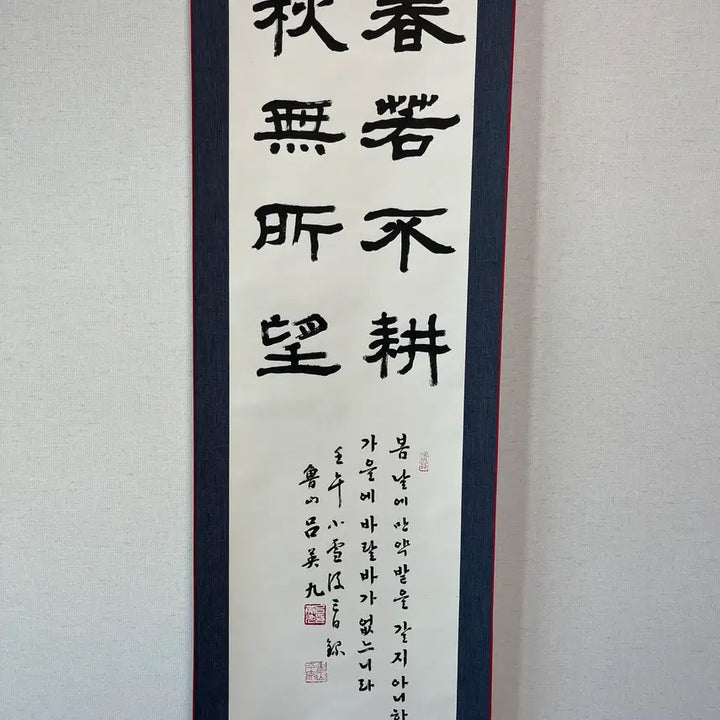 春若不耕
秋無所望
봄날에만약밭을갈지아니하
가을에바랄바가없느니라
壬午小雪後三日錄
魯山呂英九